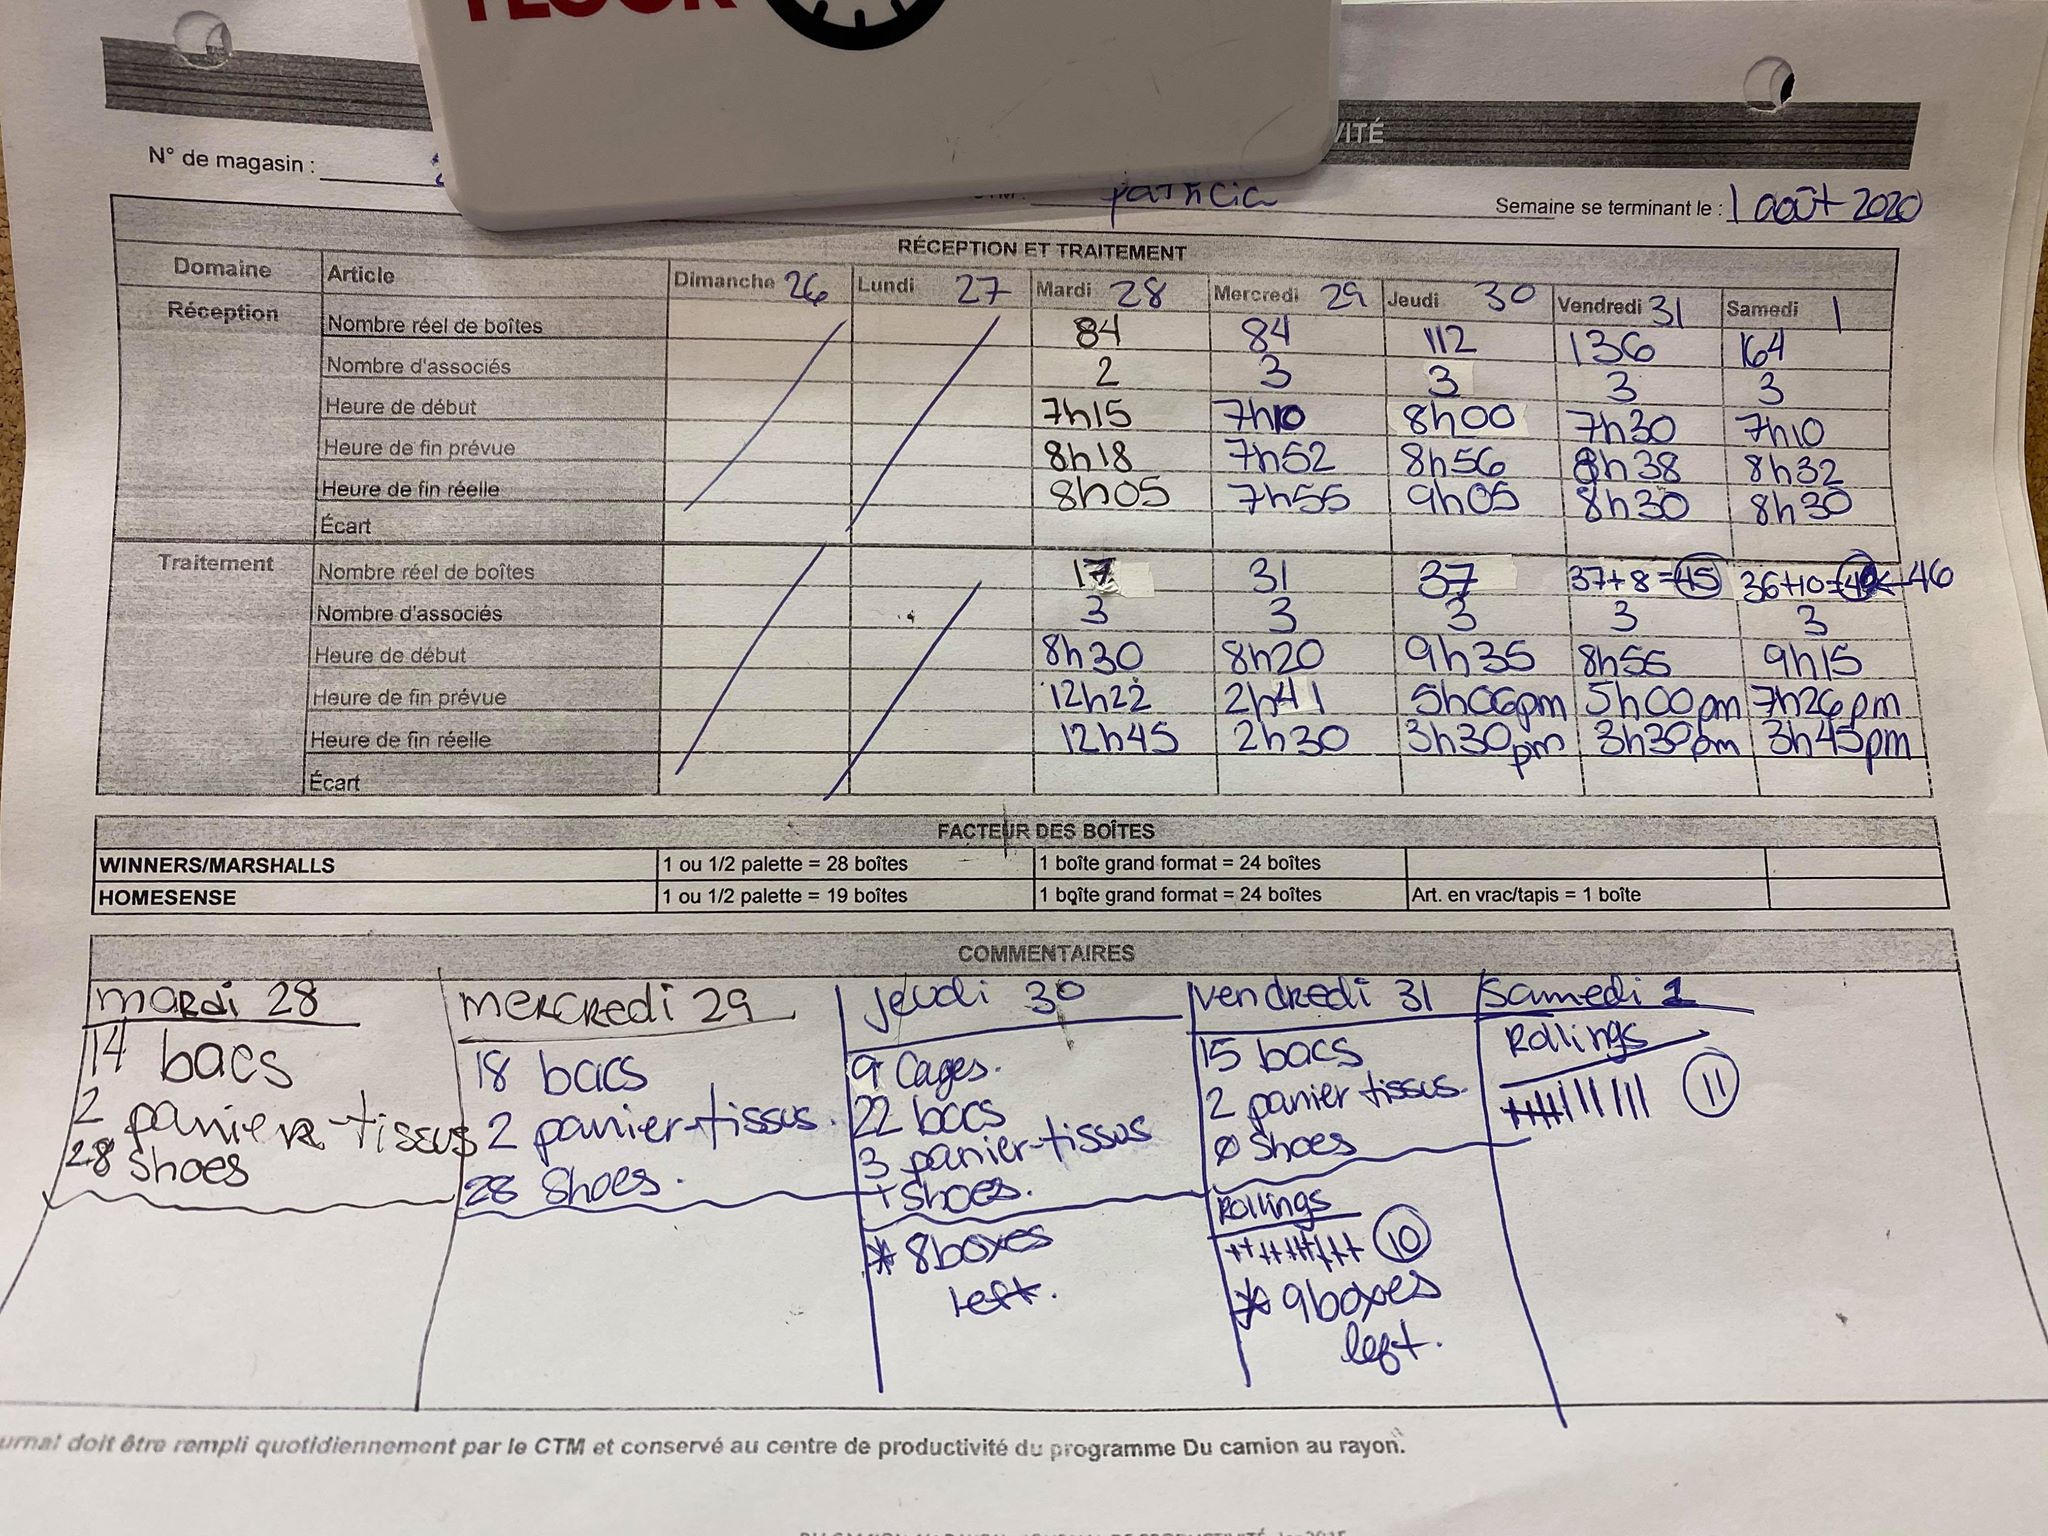 VITÉ
N° de magasin :
patricia
Semaine se terminant le : 1 août 2020
RÉCEPTION ET TRAITEMENT
Domaine Article Dimanche 26 Lundi 27 Mardi 28 Mercredi 29 Jeudi 30 Vendredi 31 Samedi 1
Réception
Nombre réel de boîtes 84 84 112 136 164
Nombre d'associés 2 3 3 3 3
Heure de début 7h15 7h10 8h00 7h30 7h10
Heure de fin prévue 8h18 7h52 8h56 8h38 8h32
Heure de fin réelle 8h05 7h55 9h05 8h30 8h30
Écart
Traitement
Nombre réel de boîtes 17 31 37 37+8=45 36+10= ←46
Nombre d'associés 3 3 3 3 3
Heure de début 8h30 8h20 9h35 8h55 9h15
Heure de fin prévue 12h22 2h41 5h06pm 5h00pm 7h26pm
Heure de fin réelle 12h45 2h30 3h30pm 3h30pm 3h45pm
Écart
FACTEUR DES BOÎTES
WINNERS/MARSHALLS 1 ou 1/2 palette = 28 boîtes 1 boîte grand format = 24 boîtes
HOMESENSE 1 ou 1/2 palette = 19 boîtes 1 boîte grand format = 24 boîtes Art. en vrac/tapis = 1 boîte
COMMENTAIRES
mardi 28
14 bacs
2 panier-tissus
28 shoes
mercredi 29
18 bacs
2 panier-tissus.
28 Shoes.
jeudi 30
9 Cages.
22 bacs
3 panier-tissus
+ shoes.
* 8 boxes
left.
vendredi 31
15 bacs
2 panier tissus.
Ø Shoes
Rollings
10
* 9 boxes
left.
Samedi 1
Rollings
11
urnal doit être rempli quotidiennement par le CTM et conservé au centre de productivité du programme Du camion au rayon.